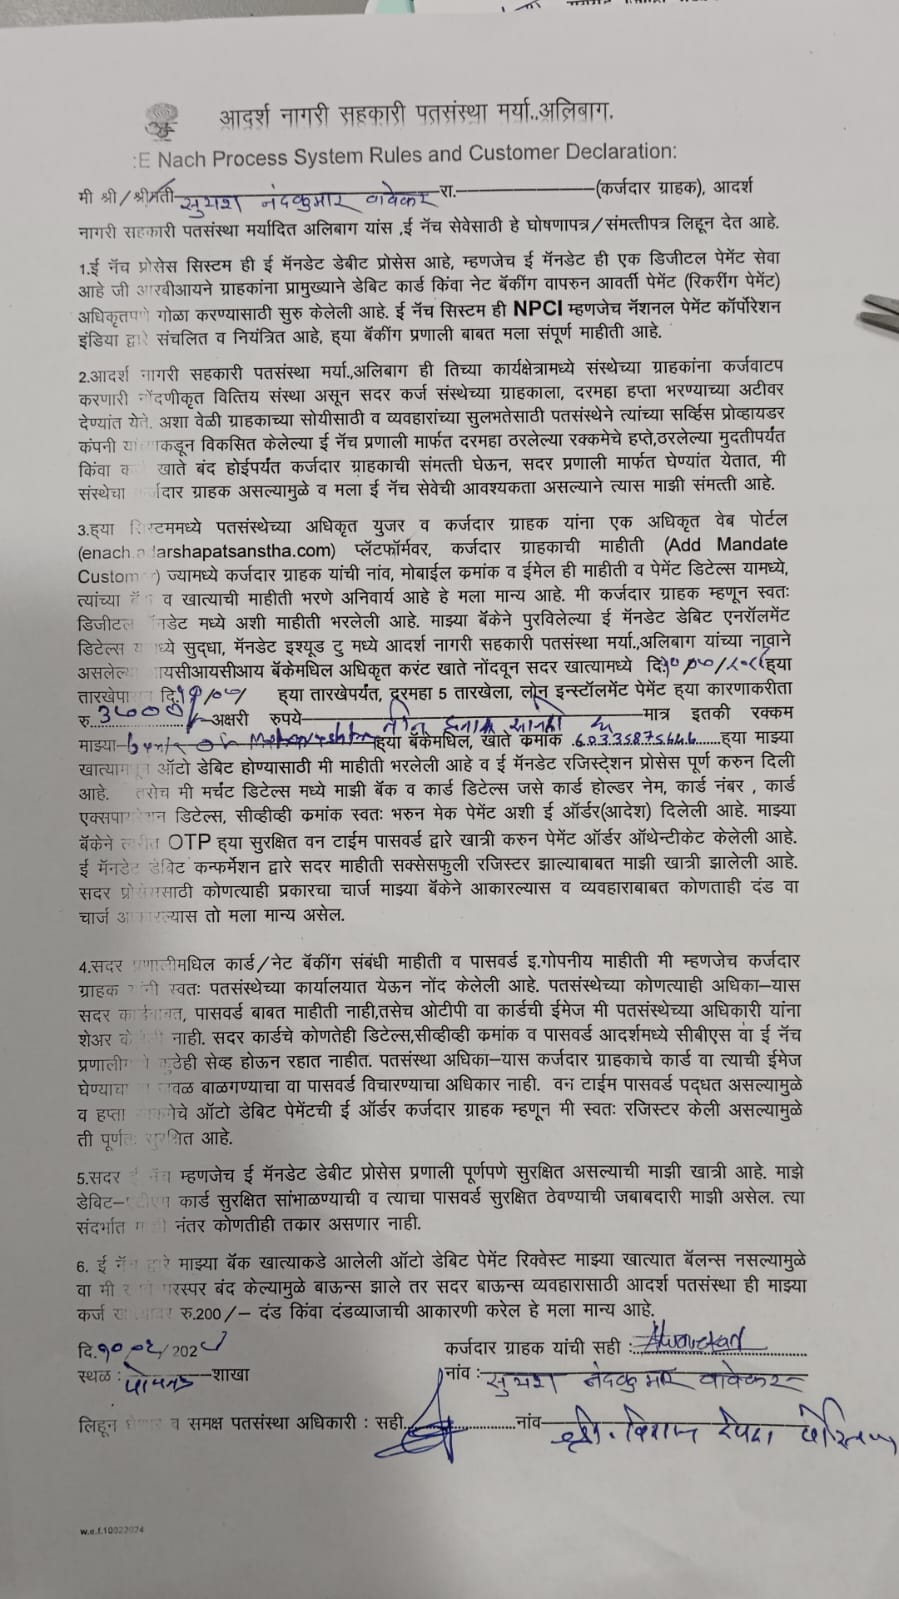 आदर्श नागरी सहकारी पतसंस्था मर्या..अलिबाग.
:E Nach Process System Rules and Customer Declaration:
मी श्री/श्रीमती सुयश नंदकुमार वावेकर रा. (कर्जदार ग्राहक), आदर्श
नागरी सहकारी पतसंस्था मर्यादित अलिबाग यांस ,ई नॅच सेवेसाठी हे घोषणापत्र/संमत्तीपत्र लिहून देत आहे.
1.ई नॅच प्रोसेस सिस्टम ही ई मॅनडेट डेबीट प्रोसेस आहे, म्हणजेच ई मॅनडेट ही एक डिजीटल पेमेंट सेवा
आहे जी आरबीआयने ग्राहकांना प्रामुख्याने डेबिट कार्ड किंवा नेट बॅकींग वापरुन आवर्ती पेमेंट (रिकरींग पेमेंट)
अधिकृतपणे गोळा करण्यासाठी सुरु केलेली आहे. ई नॅच सिस्टम ही NPCI म्हणजेच नॅशनल पेमेंट कॉर्पोरेशन
इंडिया द्वारे संचलित व नियंत्रित आहे, ह्या बॅकींग प्रणाली बाबत मला संपूर्ण माहीती आहे.
2.आदर्श नागरी सहकारी पतसंस्था मर्या.,अलिबाग ही तिच्या कार्यक्षेत्रामध्ये संस्थेच्या ग्राहकांना कर्जवाटप
करणारी नोंदणीकृत वित्तिय संस्था असून सदर कर्ज संस्थेच्या ग्राहकाला, दरमहा हप्ता भरण्याच्या अटीवर
देण्यांत येते. अशा वेळी ग्राहकाच्या सोयीसाठी व व्यवहारांच्या सुलभतेसाठी पतसंस्थेने त्यांच्या सर्व्हिस प्रोव्हायडर
कंपनी यांचाकडून विकसित केलेल्या ई नॅच प्रणाली मार्फत दरमहा ठरलेल्या रक्कमेचे हप्ते,ठरलेल्या मुदतीपर्यंत
किंवा खाते बंद होईपर्यंत कर्जदार ग्राहकाची संमत्ती घेऊन, सदर प्रणाली मार्फत घेण्यांत येतात, मी
संस्थेचा कर्जदार ग्राहक असल्यामुळे व मला ई नॅच सेवेची आवश्यकता असल्याने त्यास माझी संमत्ती आहे.
3.ह्या सिस्टममध्ये पतसंस्थेच्या अधिकृत युजर व कर्जदार ग्राहक यांना एक अधिकृत वेब पोर्टल
(enach.adarshapatsanstha.com) प्लॅटफॉर्मवर, कर्जदार ग्राहकाची माहीती (Add Mandate
Customer) ज्यामध्ये कर्जदार ग्राहक यांची नांव, मोबाईल क्रमांक व ईमेल ही माहीती व पेमेंट डिटेल्स यामध्ये,
त्यांच्या व खात्याची माहीती भरणे अनिवार्य आहे हे मला मान्य आहे. मी कर्जदार ग्राहक म्हणून स्वतः
डिजीटल मॅनडेट मध्ये अशी माहीती भरलेली आहे. माझ्या बॅकेने पुरविलेल्या ई मॅनडेट डेबिट एनरॉलमेंट
डिटेल्स मध्ये सुद्धा, मॅनडेट इश्यूड टु मध्ये आदर्श नागरी सहकारी पतसंस्था मर्या.,अलिबाग यांच्या नावाने
असलेल्या आयसीआयसीआय बॅकेमधिल अधिकृत करंट खाते नोंदवून सदर खात्यामध्ये दि. ह्या
तारखेपासून दि. ह्या तारखेपर्यंत, दरमहा 5 तारखेला, लोन इन्स्टॉलमेंट पेमेंट ह्या कारणाकरीता
रु. अक्षरी रुपये मात्र इतकी रक्कम
माझ्या bank of Maharashtra ह्या बॅकेमधिल, खाते क्रमांक 60335875646 ह्या माझ्या
खात्यामधून ऑटो डेबिट होण्यासाठी मी माहीती भरलेली आहे व ई मॅनडेट रजिस्ट्रेशन प्रोसेस पूर्ण करुन दिली
आहे. तसेच मी मर्चंट डिटेल्स मध्ये माझी बॅक व कार्ड डिटेल्स जसे कार्ड होल्डर नेम, कार्ड नंबर , कार्ड
एक्सपायरेशन डिटेल्स, सीव्हीव्ही क्रमांक स्वतः भरुन मेक पेमेंट अशी ई ऑर्डर(आदेश) दिलेली आहे. माझ्या
बॅकेने OTP ह्या सुरक्षित वन टाईम पासवर्ड द्वारे खात्री करुन पेमेंट ऑर्डर ऑथेन्टीकेट केलेली आहे.
ई मॅनडेट डेबिट कन्फर्मेशन द्वारे सदर माहीती सक्सेसफुली रजिस्टर झाल्याबाबत माझी खात्री झालेली आहे.
सदर प्रोसेससाठी कोणत्याही प्रकारचा चार्ज माझ्या बॅकेने आकारल्यास व व्यवहाराबाबत कोणताही दंड वा
चार्ज आकारल्यास तो मला मान्य असेल.
4.सदर प्रणालीमधिल कार्ड/नेट बॅकींग संबंधी माहीती व पासवर्ड इ.गोपनीय माहीती मी म्हणजेच कर्जदार
ग्राहक यांनी स्वतः पतसंस्थेच्या कार्यालयात येऊन नोंद केलेली आहे. पतसंस्थेच्या कोणत्याही अधिका–यास
सदर कार्डबाबत, पासवर्ड बाबत माहीती नाही,तसेच ओटीपी वा कार्डची ईमेज मी पतसंस्थेच्या अधिकारी यांना
शेअर केलेली नाही. सदर कार्डचे कोणतेही डिटेल्स,सीव्हीव्ही क्रमांक व पासवर्ड आदर्शमध्ये सीबीएस वा ई नॅच
प्रणालीमध्ये कुठेही सेव्ह होऊन रहात नाहीत. पतसंस्था अधिका–यास कर्जदार ग्राहकाचे कार्ड वा त्याची ईमेज
घेण्याचा जवळ बाळगण्याचा वा पासवर्ड विचारण्याचा अधिकार नाही. वन टाईम पासवर्ड पद्धत असल्यामुळे
व हप्ता रक्कमेचे ऑटो डेबिट पेमेंटची ई ऑर्डर कर्जदार ग्राहक म्हणून मी स्वतः रजिस्टर केली असल्यामुळे
ती पूर्णतः सुरक्षित आहे.
5.सदर ई नॅच म्हणजेच ई मॅनडेट डेबीट प्रोसेस प्रणाली पूर्णपणे सुरक्षित असल्याची माझी खात्री आहे. माझे
डेबिट–एटीएम कार्ड सुरक्षित सांभाळण्याची व त्याचा पासवर्ड सुरक्षित ठेवण्याची जबाबदारी माझी असेल. त्या
संदर्भात नंतर कोणतीही तकार असणार नाही.
6. ई नॅच द्वारे माझ्या बॅक खात्याकडे आलेली ऑटो डेबिट पेमेंट रिक्वेस्ट माझ्या खात्यात बॅलन्स नसल्यामुळे
वा मी परस्पर बंद केल्यामुळे बाऊन्स झाले तर सदर बाऊन्स व्यवहारासाठी आदर्श पतसंस्था ही माझ्या
कर्ज रु.200/– दंड किंवा दंडव्याजाची आकारणी करेल हे मला मान्य आहे.
दि. कर्जदार ग्राहक यांची सही :
स्थळ : पोयनाड शाखा नांव : सुयश नंदकुमार वावेकर
लिहून घेणार व समक्ष पतसंस्था अधिकारी : सही नांव
w.e.f.10022024